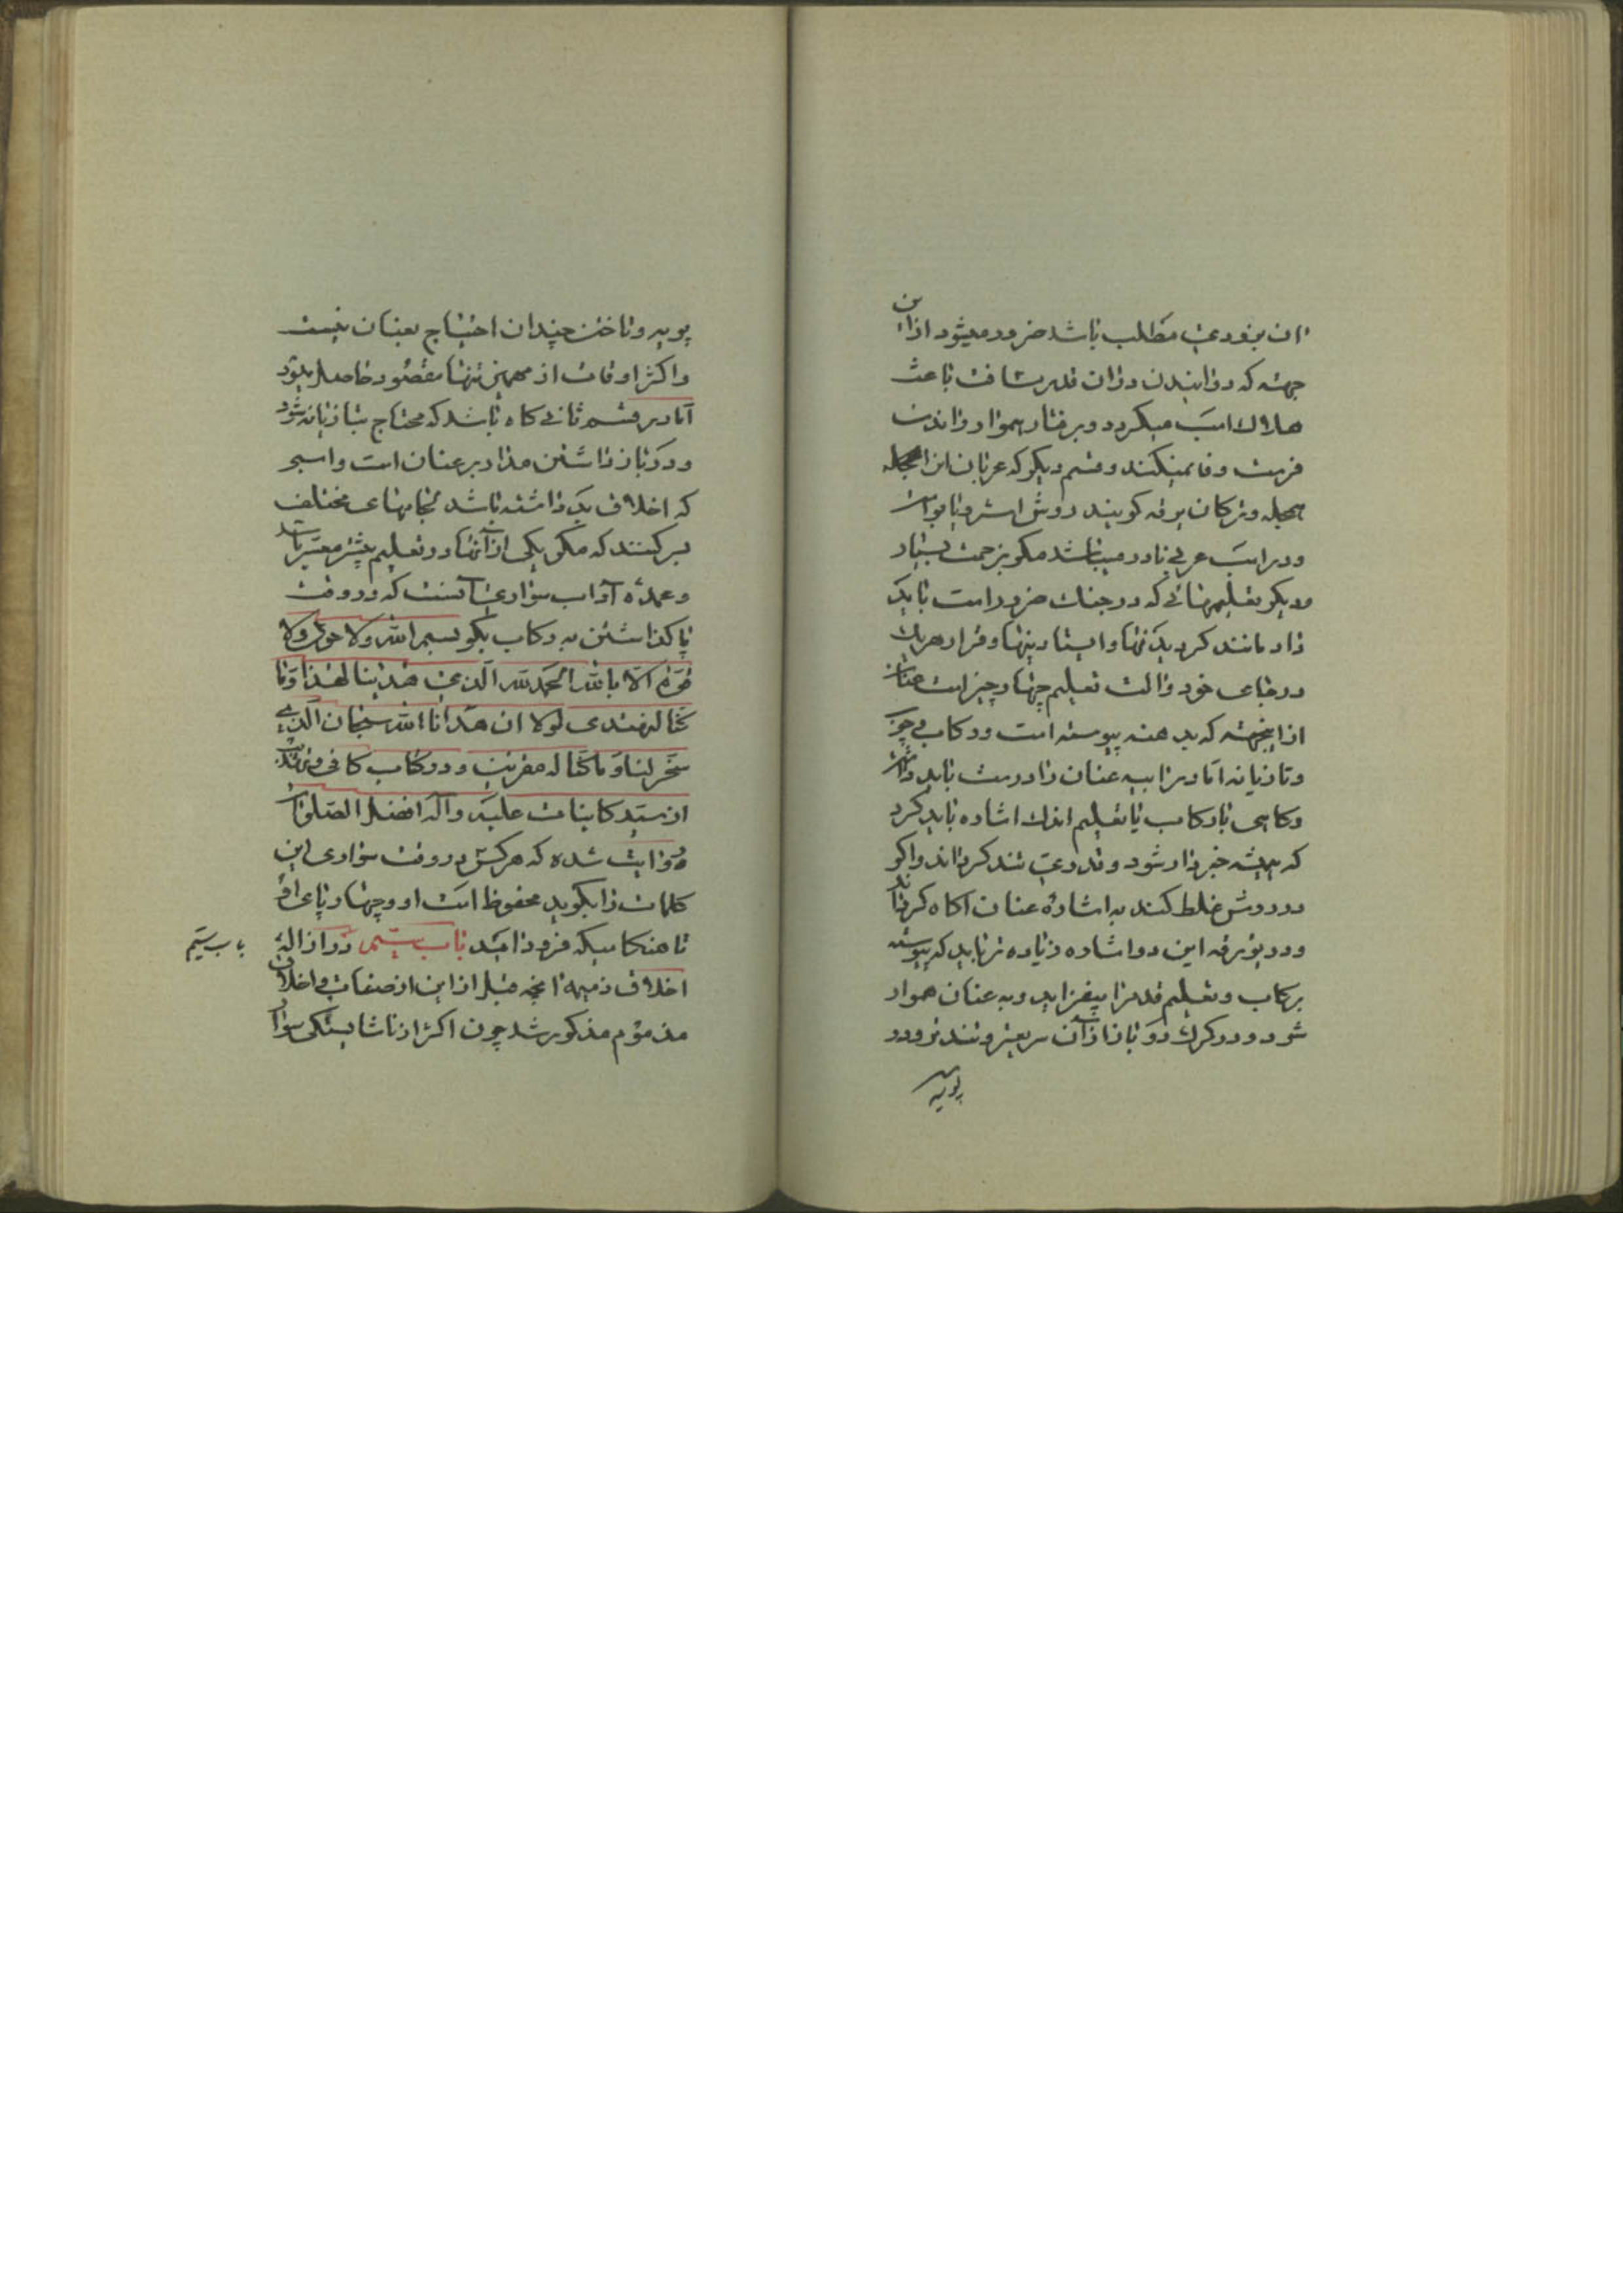 ان بزودی مطالب باشد ضرور میشود ازاین
جهته که دوانیدن دران قدر مسافت باعث
هلاك اسب میکردد و برفتار هموار راندن
فرصت وفا نمیکند و قسم دیکر که عربان ان
هجله و ترکان یورقه کویند روش استر و یابو است
و در اسب عربی نادر میباشد مکر بزحمت بسیار
و دیکر تعلیمهائی که در جنك ضرور است باید
داد مانند کردیدنها و ایستادنها و قرار هریك
در جای خود و الت تعلیم چهار چیز است عنان
ازاینجهته که بدهنه پیوسته است و رکاب و چوب
و تازیانه اما در مراتب عنان را درست باید داشت
و کاهی با رکاب یا تعلیم اندك اشاره باید کرد
که همیشه خبردار شود و قدری تند کرداند و اکر
در روش غلط کند به اشارهٔ عنان اکاه کرداند
و در یورقه این دو اشاره زیاده تر باید که پیوسته
برکاب و تعلیم قدم را بیفزاید و به عنان هموار
شود و در کرك دو باز ازان سریعتر و تندتر و در
پویه
پویه و تاختن چندان احتیاج بعنان نیست
و اکثر اوقات از مهمیز تنها مقصود حاصل بود
اما در قسم ثانی کاه باشد که محتاج بتازیانه شود
و در باز داشتن مدار بر عنان است و اسبی
که اخلاق بد داشته باشد لجامهای مختلف
بر کنند که مکر یکی ازآنها در تعلیم بیشتر معتبر باشد
و عمدهٔ آداب سواری آنست که در وقت
پا کذاشتن به رکاب بکو بسم الله ولا حول ولا
قوة الا بالله الحمد لله الذی هدینا لهذا وما
کنا لنهتدی لولا ان هدانا الله سبحان الذی
سخر لنا وما کنا له مقرنین و در کتاب کافی
از سید کاینات علیه و آله افضل الصلوات
روایت شده که هرکس در وقت سواری این
کلمات را بکوید محفوظ است او و چهارپای او
تا هنکامیکه فرود اید باب سیم در ازالهٔ
باب سیم
اخلاق ذمیمه انچه قبل ازاین از صفات و اخلاق
مذموم مذکور شد چون اکثر از ناشایستکی سوار